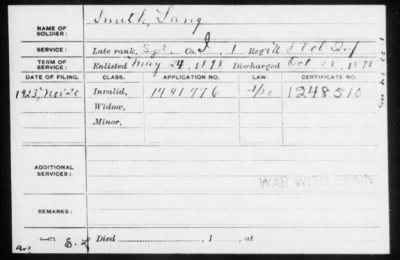 NAME OF SOLDIER: Smith, Lang
SERVICE: Late rank, Sgt. Co. I, 1 Reg't Vol Inf
TERM OF SERVICE: Enlisted May 24, 1898 Discharged Oct 28, 1898
DATE OF FILING. CLASS. APPLICATION NO. LAW. CERTIFICATE NO.
1923, Invalid, 1441776 1248510
Widow,
Minor,
ADDITIONAL SERVICES:
WAR WITH SPAIN
REMARKS:
Died , 1 , at